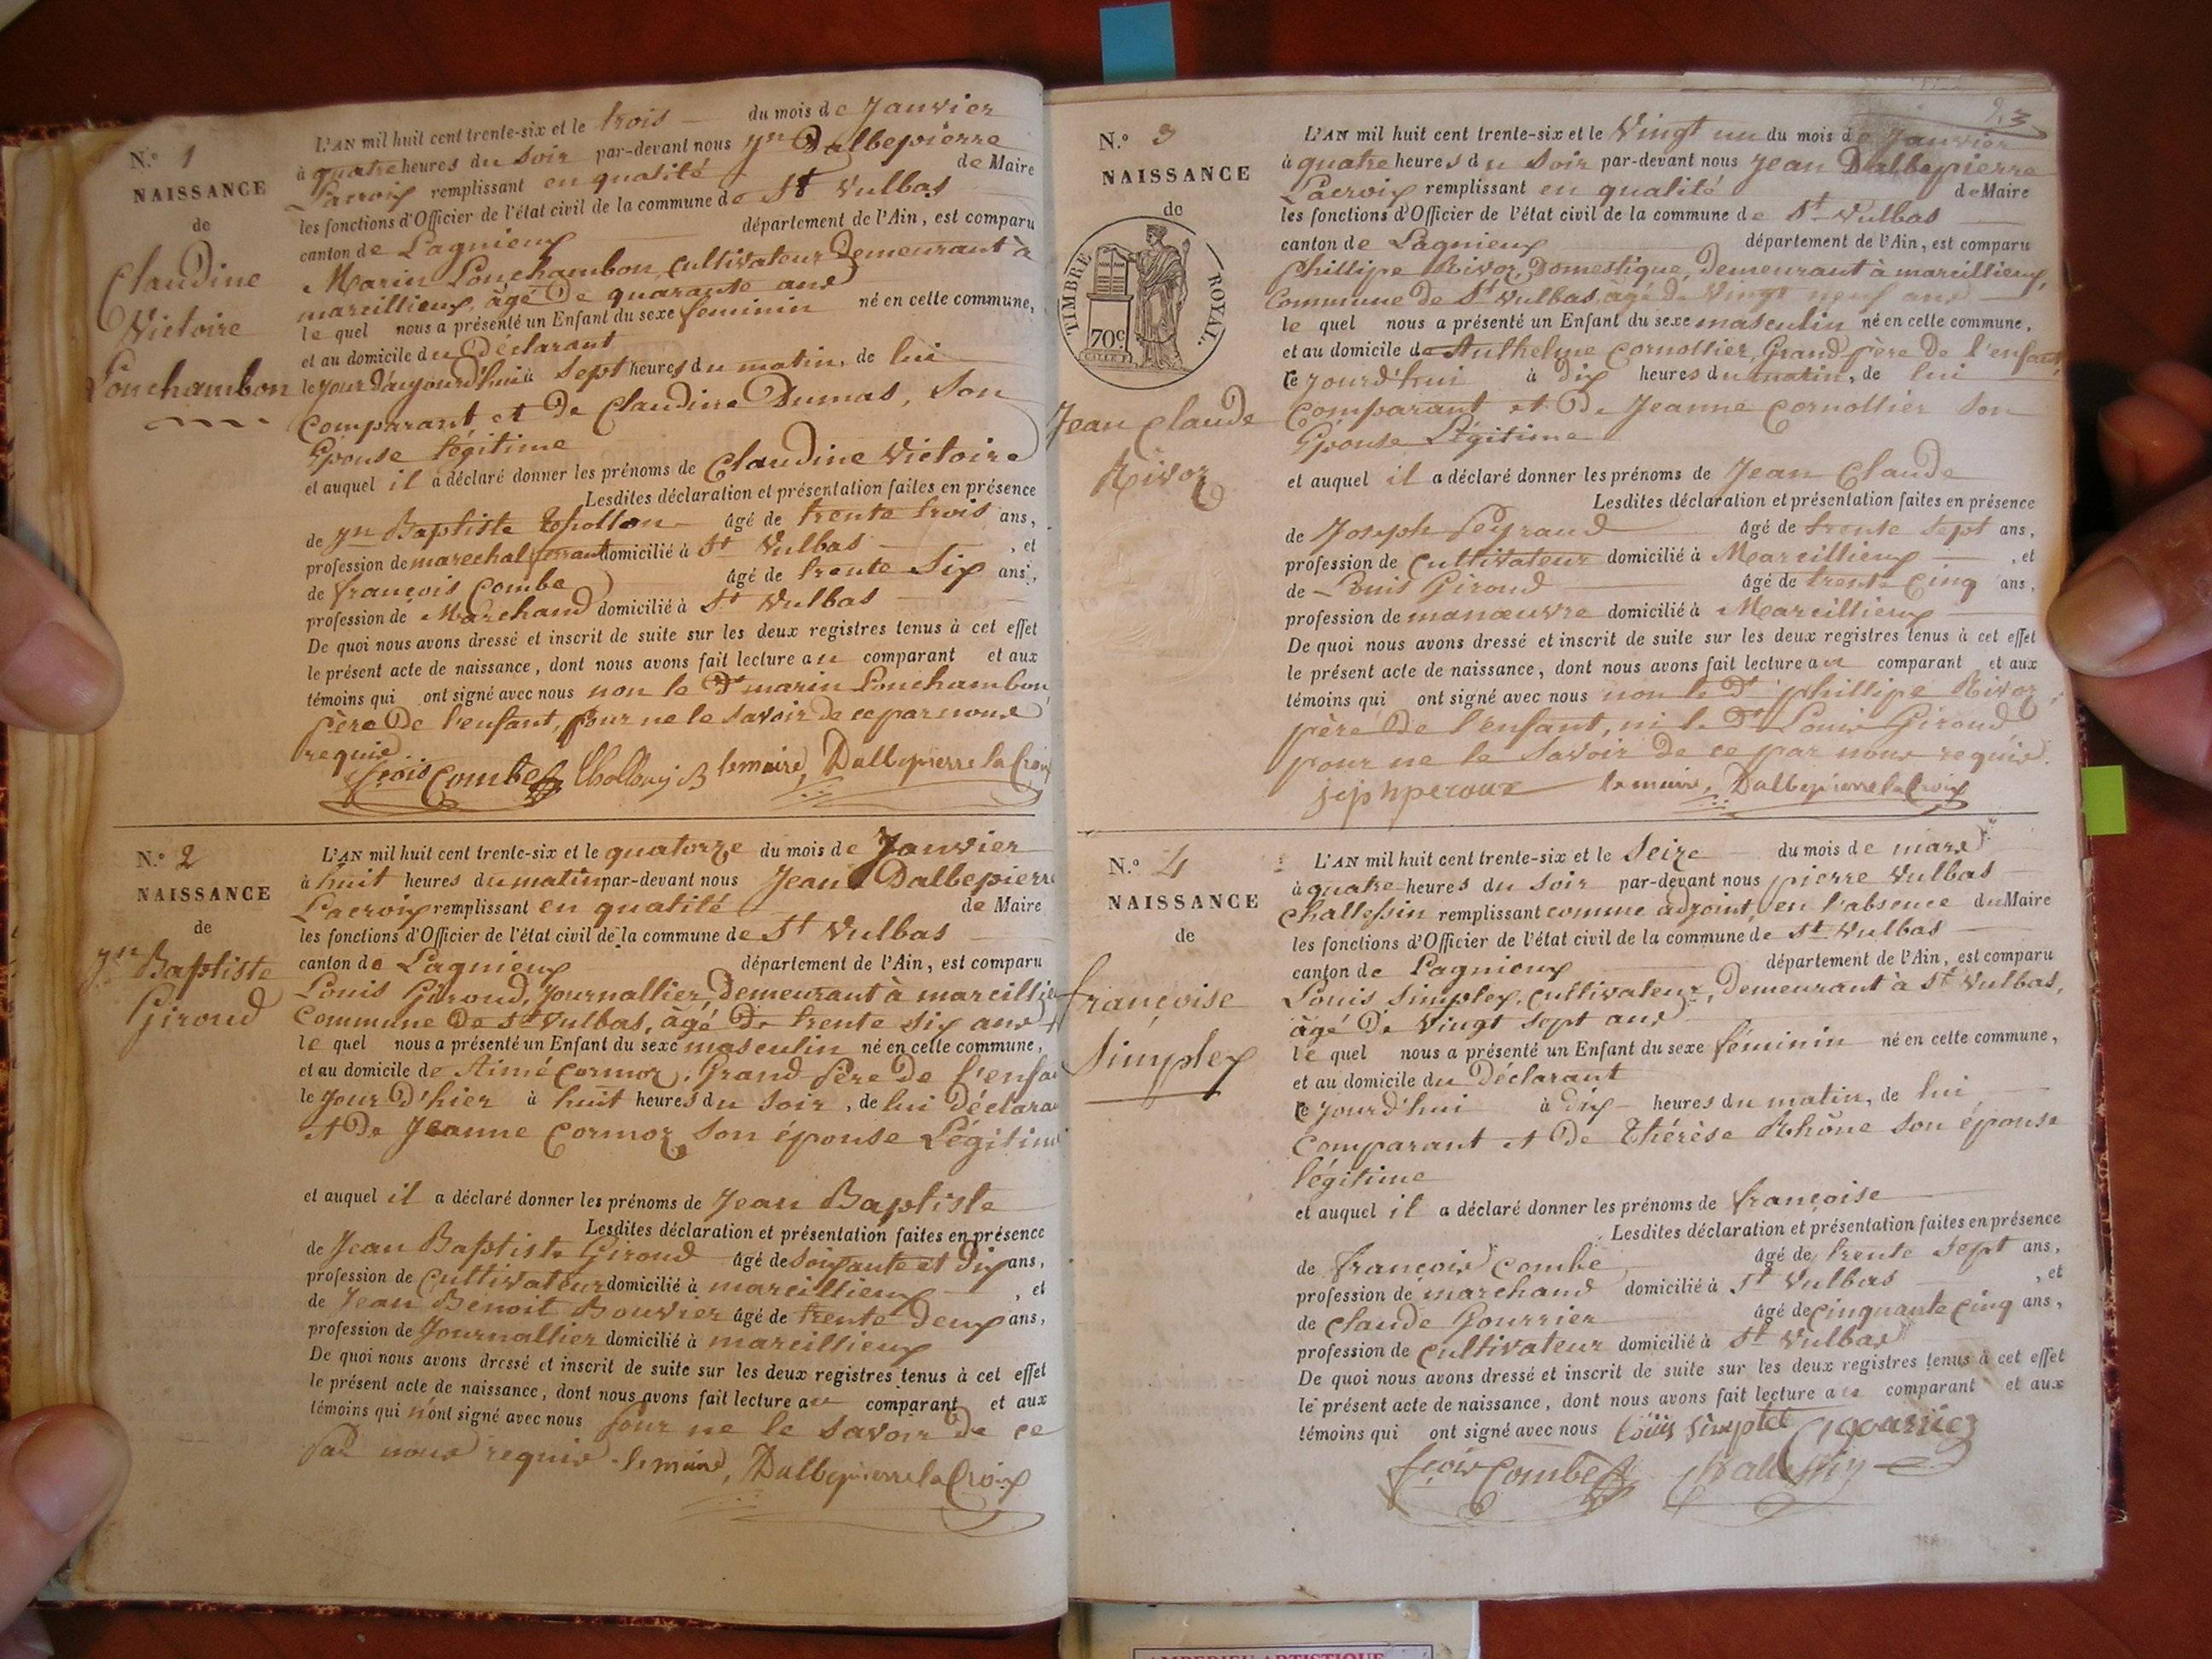 N.° 1
NAISSANCE
de
Claudine
Victoire
Lonchambon
L'AN mil huit cent trente-six et le trois du mois de Janvier
à quatre heures du soir par-devant nous Jn Dalbepierre
Lacroix remplissant en qualité de Maire
les fonctions d'Officier de l'état civil de la commune de St Vulbas
canton de Lagnieux département de l'Ain, est comparu
Marin Lonchambon, cultivateur, Demeurant à
marcillieux, âgé De quarante ans
le quel nous a présenté un Enfant du sexe feminin né en cette commune,
et au domicile du Déclarant
le jour d'aujourd'hui à sept heures du matin, de lui
Comparant et de Claudine Dumas, son
Epouse légitime
et auquel il a déclaré donner les prénoms de Claudine Victoire
Lesdites déclaration et présentation faites en présence
de Jn Baptiste Thollon âgé de trente trois ans,
profession de marechal ferrant domicilié à St Vulbas , et
de françois Combe âgé de trente Six ans,
profession de Marchand domicilié à St Vulbas
De quoi nous avons dressé et inscrit de suite sur les deux registres tenus à cet effet
le présent acte de naissance, dont nous avons fait lecture au comparant et aux
témoins qui ont signé avec nous non le Dt marin Lonchambon
père De l'enfant, pour ne le savoir de ce par nous
requis
fcois Combe Thollon j B le maire, Dalbepierre la Croix
N.° 2
NAISSANCE
de
Jn Baptiste
Giroud
L'AN mil huit cent trente-six et le quatorze du mois de Janvier
à huit heures du matin par-devant nous Jean Dalbepierre
Lacroix remplissant en qualité de Maire
les fonctions d'Officier de l'état civil de la commune de St Vulbas
canton de Lagnieux département de l'Ain, est comparu
Louis Giroud, Journallier, Demeurant à marcillieu
Commune De St Vulbas, âgé De trente six ans
le quel nous a présenté un Enfant du sexe masculin né en cette commune,
et au domicile de Aimé Cormoz, Grand Père De l'enfa
le Jour D'hier à huit heures du soir, de lui Déclara
et De Jeanne Cormoz son épouse Légitim
et auquel il a déclaré donner les prénoms de Jean Baptiste
Lesdites déclaration et présentation faites en présence
de Jean Baptiste Giroud âgé de soixante et Dix ans,
profession de Cultivateur domicilié à marcillieux , et
de Jean Benoit Bouvier âgé de trente Deux ans,
profession de Journallier domicilié à marcillieux
De quoi nous avons dressé et inscrit de suite sur les deux registres tenus à cet effet
le présent acte de naissance, dont nous avons fait lecture au comparant et aux
témoins qui n'ont signé avec nous pour ne le savoir De ce
par nous requis le maire, Dalbepierre la Croix
N.° 3
NAISSANCE
de
TIMBRE ROYAL.
70c
Jean Claude
Rivoz
L'AN mil huit cent trente-six et le Vingt un du mois de Janvier
à quatre heures du soir par-devant nous Jean Dalbepierre
Lacroix remplissant en qualité de Maire
les fonctions d'Officier de l'état civil de la commune de St Vulbas
canton de Lagnieux département de l'Ain, est comparu
Phillipe Rivoz, Domestique, Demeurant à marcillieux,
Commune De St Vulbas, âgé de Vingt neuf ans
le quel nous a présenté un Enfant du sexe masculin né en cette commune,
et au domicile de Anthelme Cornollier, Grand père De l'enfant,
ce jourd'hui à dix heures du matin, de lui
Comparant et De Jeanne Cornollier son
Epouse Légitime
et auquel il a déclaré donner les prénoms de Jean Claude
Lesdites déclaration et présentation faites en présence
de Joseph Peyraud âgé de trente sept ans,
profession de Cultivateur domicilié à Marcillieux , et
de Louis Giroud âgé de trente Cinq ans,
profession de manœuvre domicilié à Marcillieux
De quoi nous avons dressé et inscrit de suite sur les deux registres tenus à cet effet
le présent acte de naissance, dont nous avons fait lecture au comparant et aux
témoins qui ont signé avec nous non le Dt phillipe Rivoz
père De l'enfant, ni le Dt Louis Giroud
pour ne le savoir De ce par nous requis.
le maire, Dalbepierre la Croix
N.° 4
NAISSANCE
de
françoise
Simplex
L'AN mil huit cent trente-six et le Seize du mois de mars
à quatre heures du soir par-devant nous pierre Vulbas
Challessin remplissant comme adjoint, en l'absence du Maire
les fonctions d'Officier de l'état civil de la commune de St Vulbas
canton de Lagnieux département de l'Ain, est comparu
Louis Simplex, cultivateur, Demeurant à St Vulbas,
âgé De Vingt sept ans
le quel nous a présenté un Enfant du sexe féminin né en cette commune,
et au domicile du Déclarant
ce jourd'hui à dix heures du matin, de lui
Comparant et De Thérèse Rhône son épouse
légitime
et auquel il a déclaré donner les prénoms de françoise
Lesdites déclaration et présentation faites en présence
de françois Combe âgé de trente sept ans,
profession de marchand domicilié à St Vulbas , et
de Claude Gourrier âgé de cinquante cinq ans,
profession de cultivateur domicilié à St Vulbas
De quoi nous avons dressé et inscrit de suite sur les deux registres tenus à cet effet
le présent acte de naissance, dont nous avons fait lecture au comparant et aux
témoins qui ont signé avec nous Louis Simplex
fcois Combe Challessin